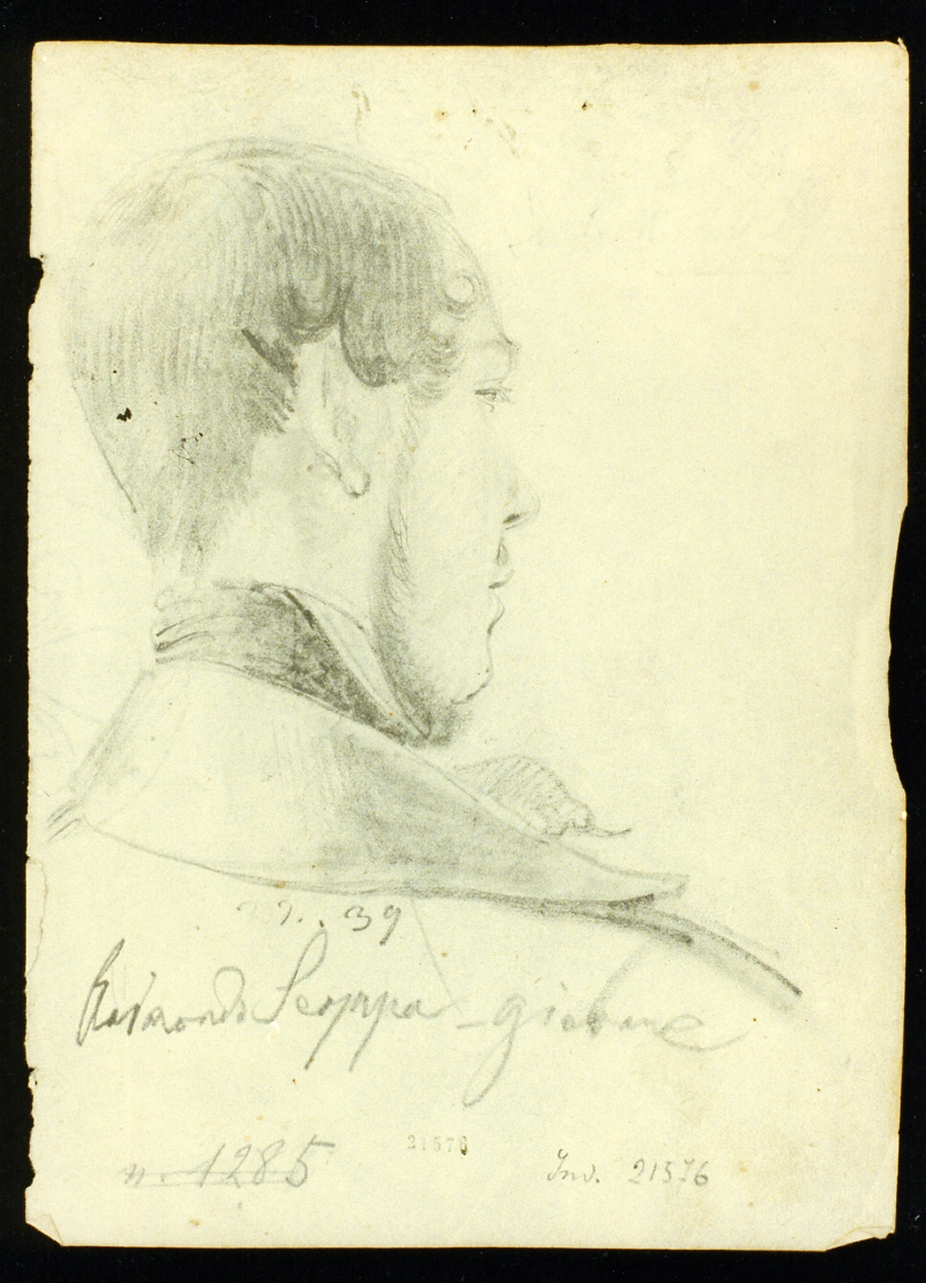 n. 39
Raimondo Scoppa - giovane
n. 1285
21576
Inv. 21576